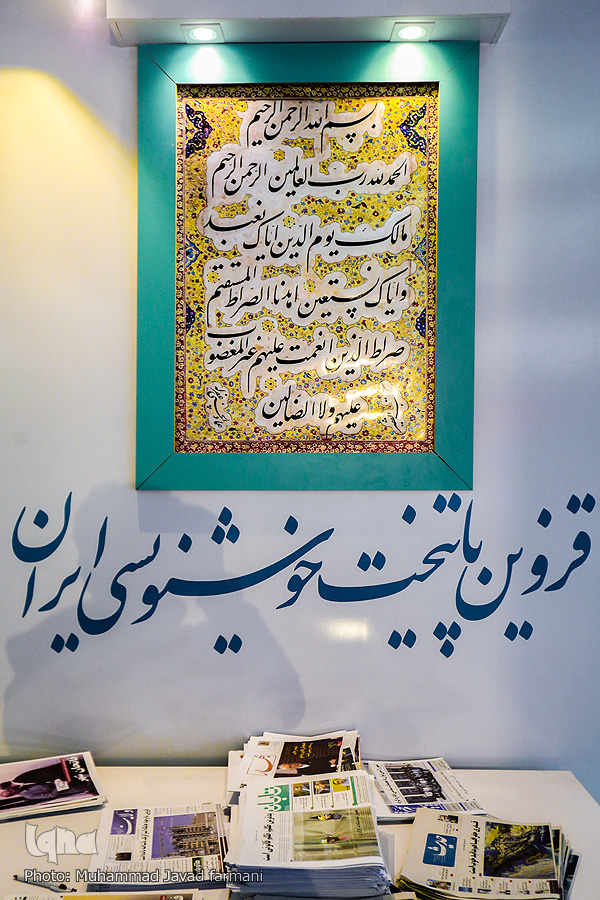 بسم الله الرحمن الرحیم
الحمد لله رب العالمین الرحمن الرحیم
مالک یوم الدین ایاک نعبد
وایاک نستعین اهدنا الصراط المستقیم
صراط الذین انعمت علیهم غیر المغضوب
علیهم ولا الضالین
قزوین پایتخت خوشنویسی ایران
تابان
حدیث
iqna
Photo: Muhammad Javad farmani